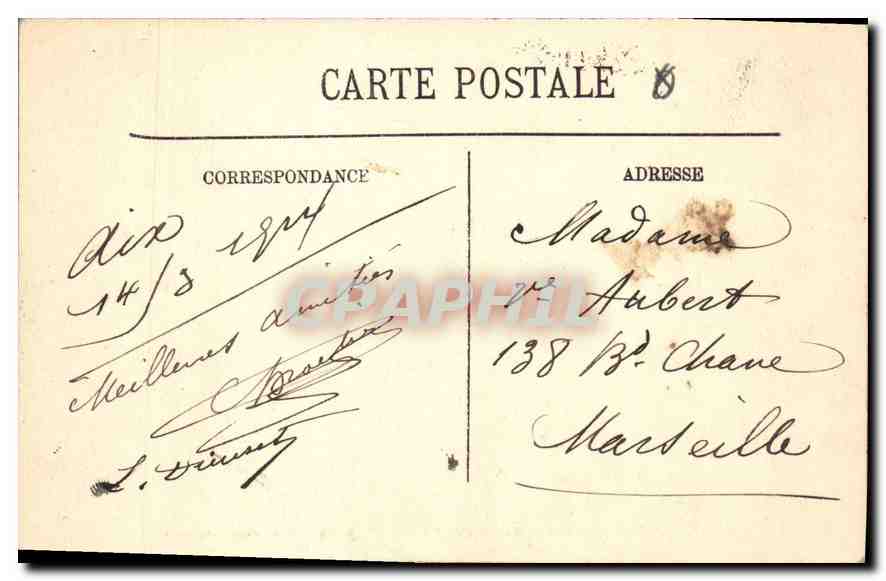 CARTE POSTALE
CORRESPONDANCE
Aix
14/3 1914
Meilleures amitiés
L.
ADRESSE
Madame
Vve Aubert
138 Bd. Chave
Marseille
CPAPHIL